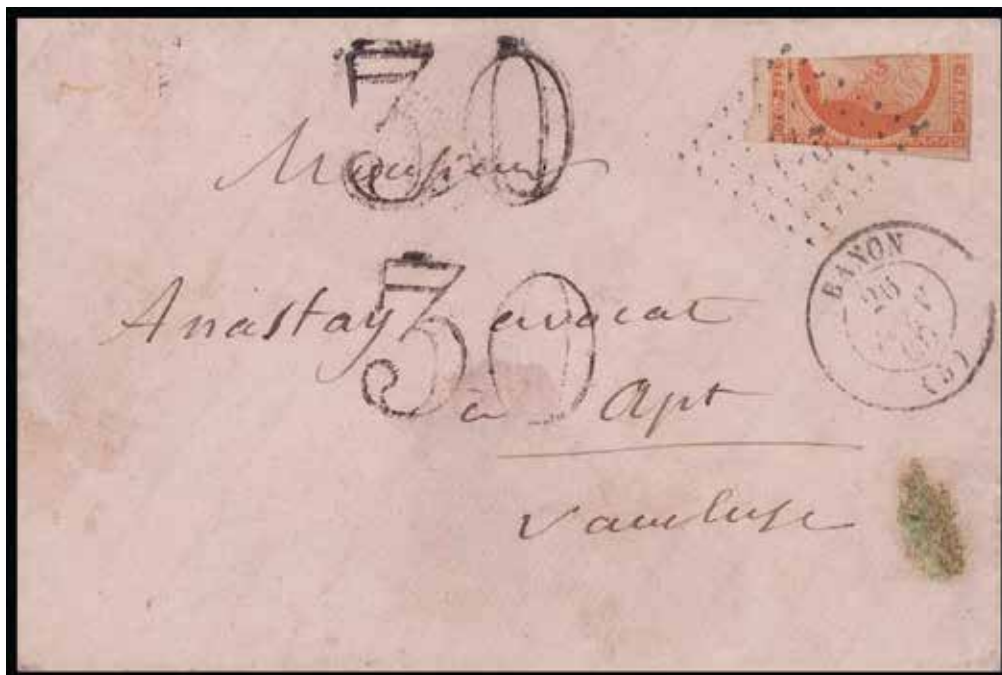 30
Monsieur
30
Anastay avocat
à Apt
Vaucluse
BANON
26
(5)